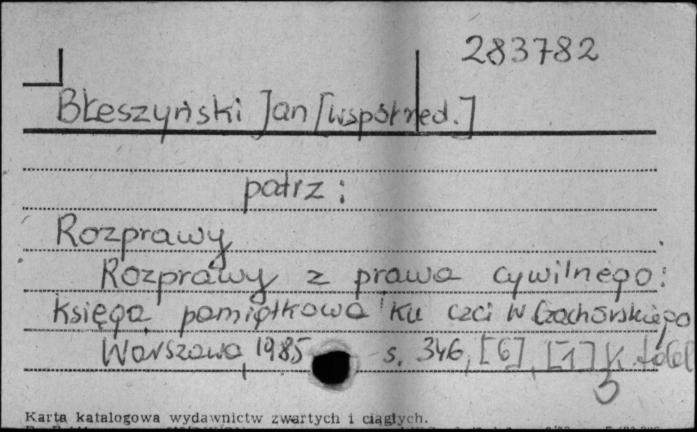 283782
Błeszyński Jan [współred.]
patrz:
Rozprawy
Rozprawy z prawa cywilnego:
księga pamiątkowa ku czci W Czachórskiego
Warszawa, 1985 s. 346, [6], [1] k.
Karta katalogowa wydawnictw zwartych i ciągłych.